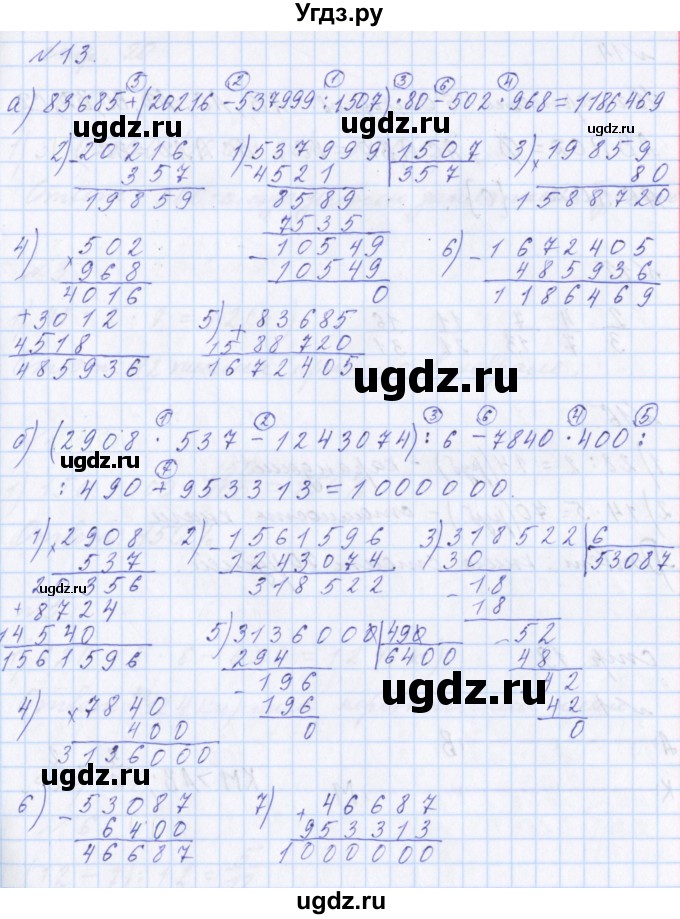 Угдз.ру
№13.
5 2 1 3 6 4
а) 83685+(20216-537999:1507)·80-502·968=1186469
ugdz.ru ugdz.ru
2) -20216 1) -537999 |1507 3) ×19859
357 4521 357 80
19859 8589 1588720
7535
4) ×502 -10549 6) -1672405
968 10549 485936
4016 0 1186469
+3012 5) +83685
4518 1588720
485936 1672405
ugdz.ru
ugdz.ru
1 2 3 6 4 5
б) (2908·537-1243074):6-7840·400:
7
:490+953313=1000000.
1) ×2908 2) -1561596 3) -318522 |6
537 1243074 30 53087.
20356 318522 -18
+8724 18
14540 5) 3136000 |490 -52
1561596 294 6400 48
-196 42
4) ×7840 196 42
400 0 0
3136000
ugdz.ru
ugdz.ru
6) -53087 7) +46687
6400 953313
46687 1000000
ugdz.ru
Угдз.ру